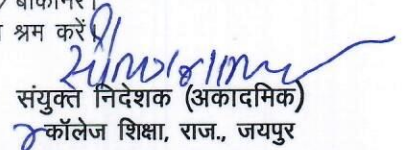 बीकानेर।
श्रम करें।
संयुक्त निदेशक (अकादमिक)
कॉलेज शिक्षा, राज., जयपुर